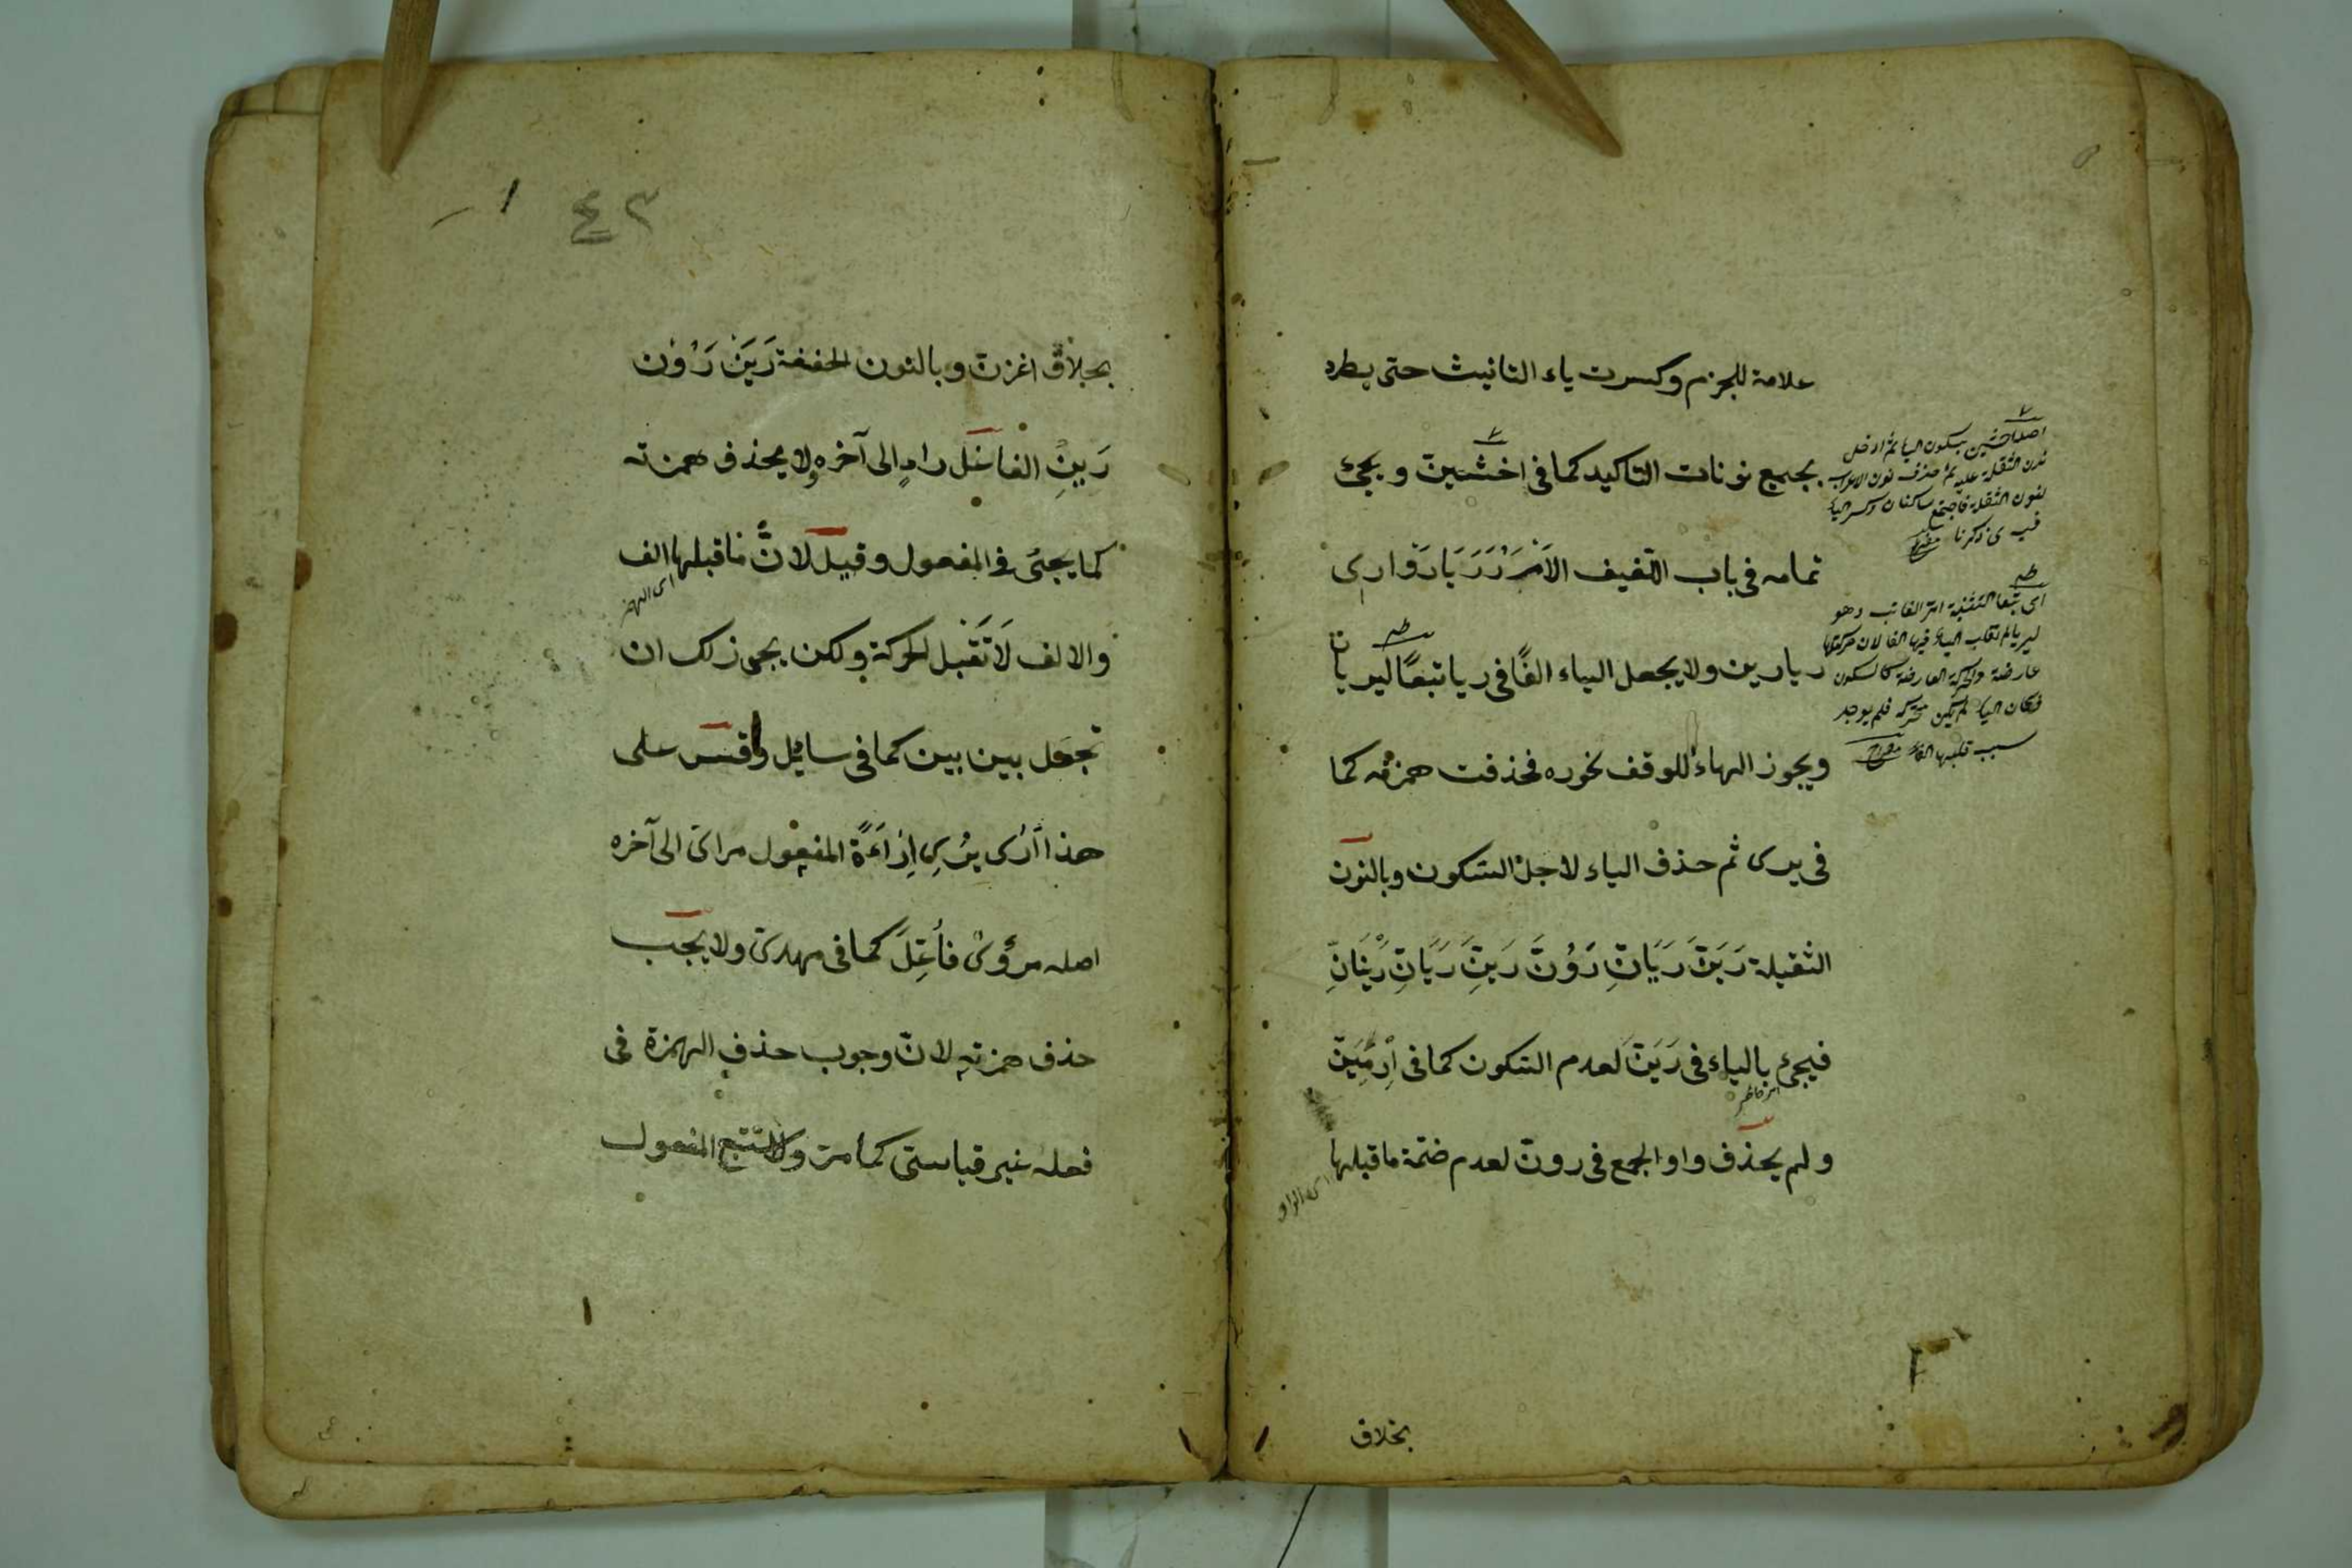 علامة للجزم وكسرت ياء التانيث حتى يطرد
بجميع نونات التاكيد كما فى اخشين ويجئ
تمامه فى باب اللفيف الأمر رَ رَيَا رَوْا رى
ريا رين ولا يجعل الياء الفًا فى ريا تبعًا ليريان
ويجوز الهاء للوقف نحو ره فحذفت همزته كما
فى يرى ثم حذف الياء لاجل السكون وبالنون
الثقيلة رَيَنَّ رَيَانِّ رَوُنَّ رَيِنَّ رَيَانِّ رَيْنَانِّ
فيجئ بالياء فى رَيَنَّ لعدم السكون كما فى اِرْمِيَنَّ
ولم يحذف واو الجمع فى رون لعدم ضمّة ما قبلها
اى الواو
بسكون الياء ثم ادخل
نون الثقلة عليه ثم حذف نون الاعراب
لنون الثقلة فاجتمع ساكنان وكسر الياء
اى تبعا لتثنية
ليريا لم تقلب الياء فيها الفا لان حركتها
عارضة والحركة العارضة كالسكون
فكان الياء لم يكن متحركة فلم يوجد
سبب قلبها الفا
بخلاف
٤٣
بخلاف اغزنّ وبالنون الخفيفة رَيَنْ رَوُن
رَيِنْ الفاعل راءٍ الى آخره ولا يحذف همزته
كما يجئ فى المفعول وقيل لانّ ما قبلها الف
اى الهمزة
والالف لَا تَقْبَل الحركة ولكن يجوز ذلك ان
تجعل بين بين كما فى سايل وقس على
هذا أرى يُرِى اِرَاءَةً المفعول مرائ الى آخره
اصله مرؤى فأُعِلَّ كما فى مهدى ولا يجب
حذف همزته لانّ وجوب حذف الهمزة فى
فعله غير قياسى كما مر ولا يستتبع المفعول